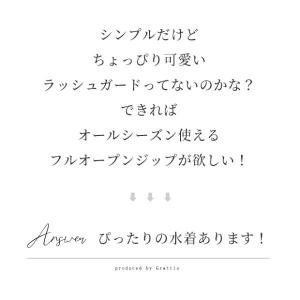 シンプルだけど
ちょっぴり可愛い
ラッシュガードってないのかな？
できれば
オールシーズン使える
フルオープンジップが欲しい！
Answer ぴったりの水着あります！
produced by Grattie